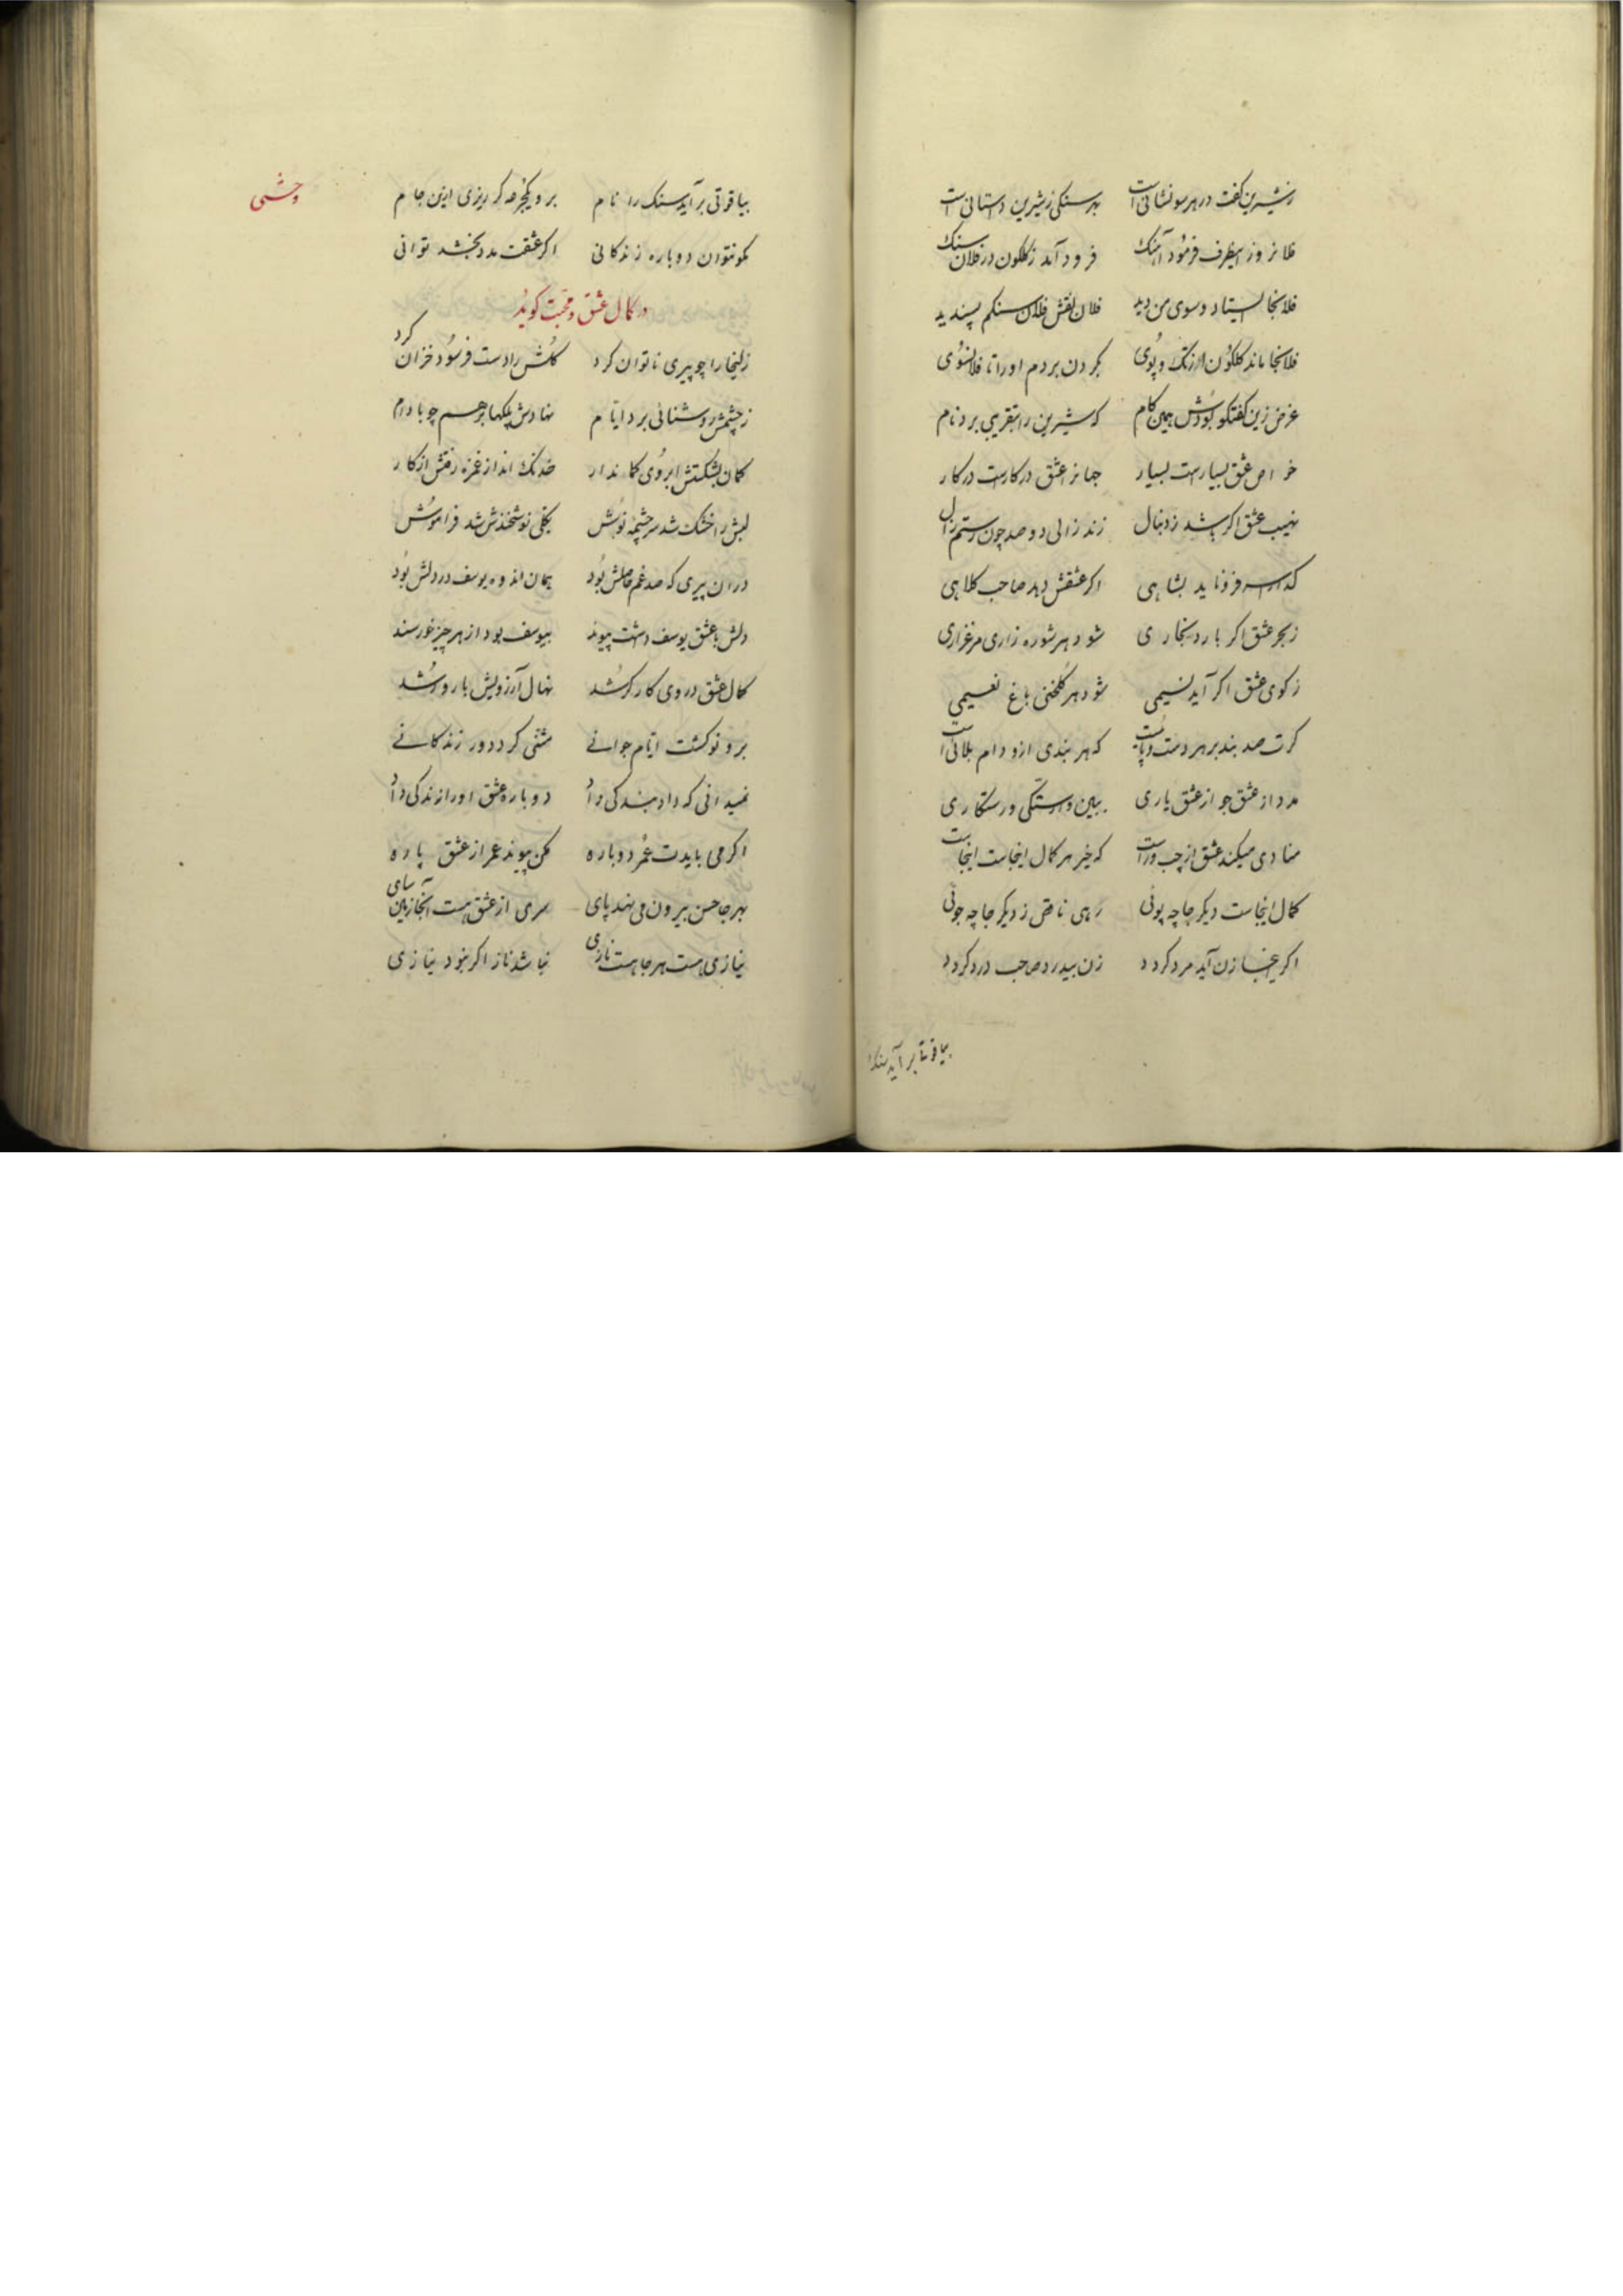 ز شیرین گفت در هر سو نشانی است بهر سنگی ز شیرین داستانی است
فلان روز اینطرف فرمود آهنگ فرود آمد ز گلگون در فلان سنگ
فلانجا ایستاد و سوی من دید فلان نقش فلان سنگم پسندید
فلانجا ماند گلگون از تک و پوی بگردن بردم او را تا فلانسوی
غرض زین گفتگو بودش همین کام که شیرین را بتقریبی برد نام
خواص عشق بسیارست بسیار جهانرا عشق در کارست در کار
نهیب عشق اگر باشد ز دنبال زند زالی دو صد چون رستم زال
گدا سر فرو ناید بشاهی اگر عشقش دهد صاحب کلاهی
ز بحر عشق اگر بارد بخاری شود هر شوره زاری مرغزاری
ز کوی عشق اگر آید نسیمی شود هر گلخنی باغ نعیمی
گرت صد بند بر هر دست و پاست که هر بندی ازو دام بلائی است
مدد از عشق جو از عشق یاری ببین وارستگی و رستگاری
منادی میکند عشق از چپ و راست که خیر هر کمال اینجاست اینجاست
کمال اینجاست دیگر جا چه پوئی رهی ناقص ز دیگر جا چه جوئی
اگر اینجا زن آید مرد گردد زن بیدرد صاحب درد گردد
بیاقوتا برآید سنگ
وحشی
بیاقوتی برآید سنگ را نام برو یکجرعه گر ریزی ازین جام
مگو نتوان دوباره زندگانی اگر عشقت مدد بخشد توانی
در کمال عشق و محبت گوید
زلیخا را چو پیری ناتوان کرد گلش را دست فرسود خزان کرد
ز چشمش روشنائی برد ایام نهادش پلکها بر هم چو بادام
کمان بشکستش ابروی کماندار خدنگ انداز غمزه رفتش از کار
لبش را خشک شد سرچشمه نوش بکلی نوشخندش شد فراموش
در آن پیری که صد غم حاصلش بود همان اندوه یوسف در دلش بود
دلش با عشق یوسف داشت پیوند بیوسف بود از هر چیز خورسند
کمال عشق در وی کارگر شد نهال آرزویش بارور شد
برو نو گشت ایام جوانے مثنی کرد دور زندگانے
نمیدانی که داد بندگی داد دوباره عشق او را زندگی داد
اگر می بایدت عمر دوباره مکن پیوند عمر از عشق پاره
بهر جا حسن بیرون می نهد پای سری از عشق هست آنجا زمین سای
نیازی هست هر جا هست نازی نباشد ناز اگر نبود نیازی